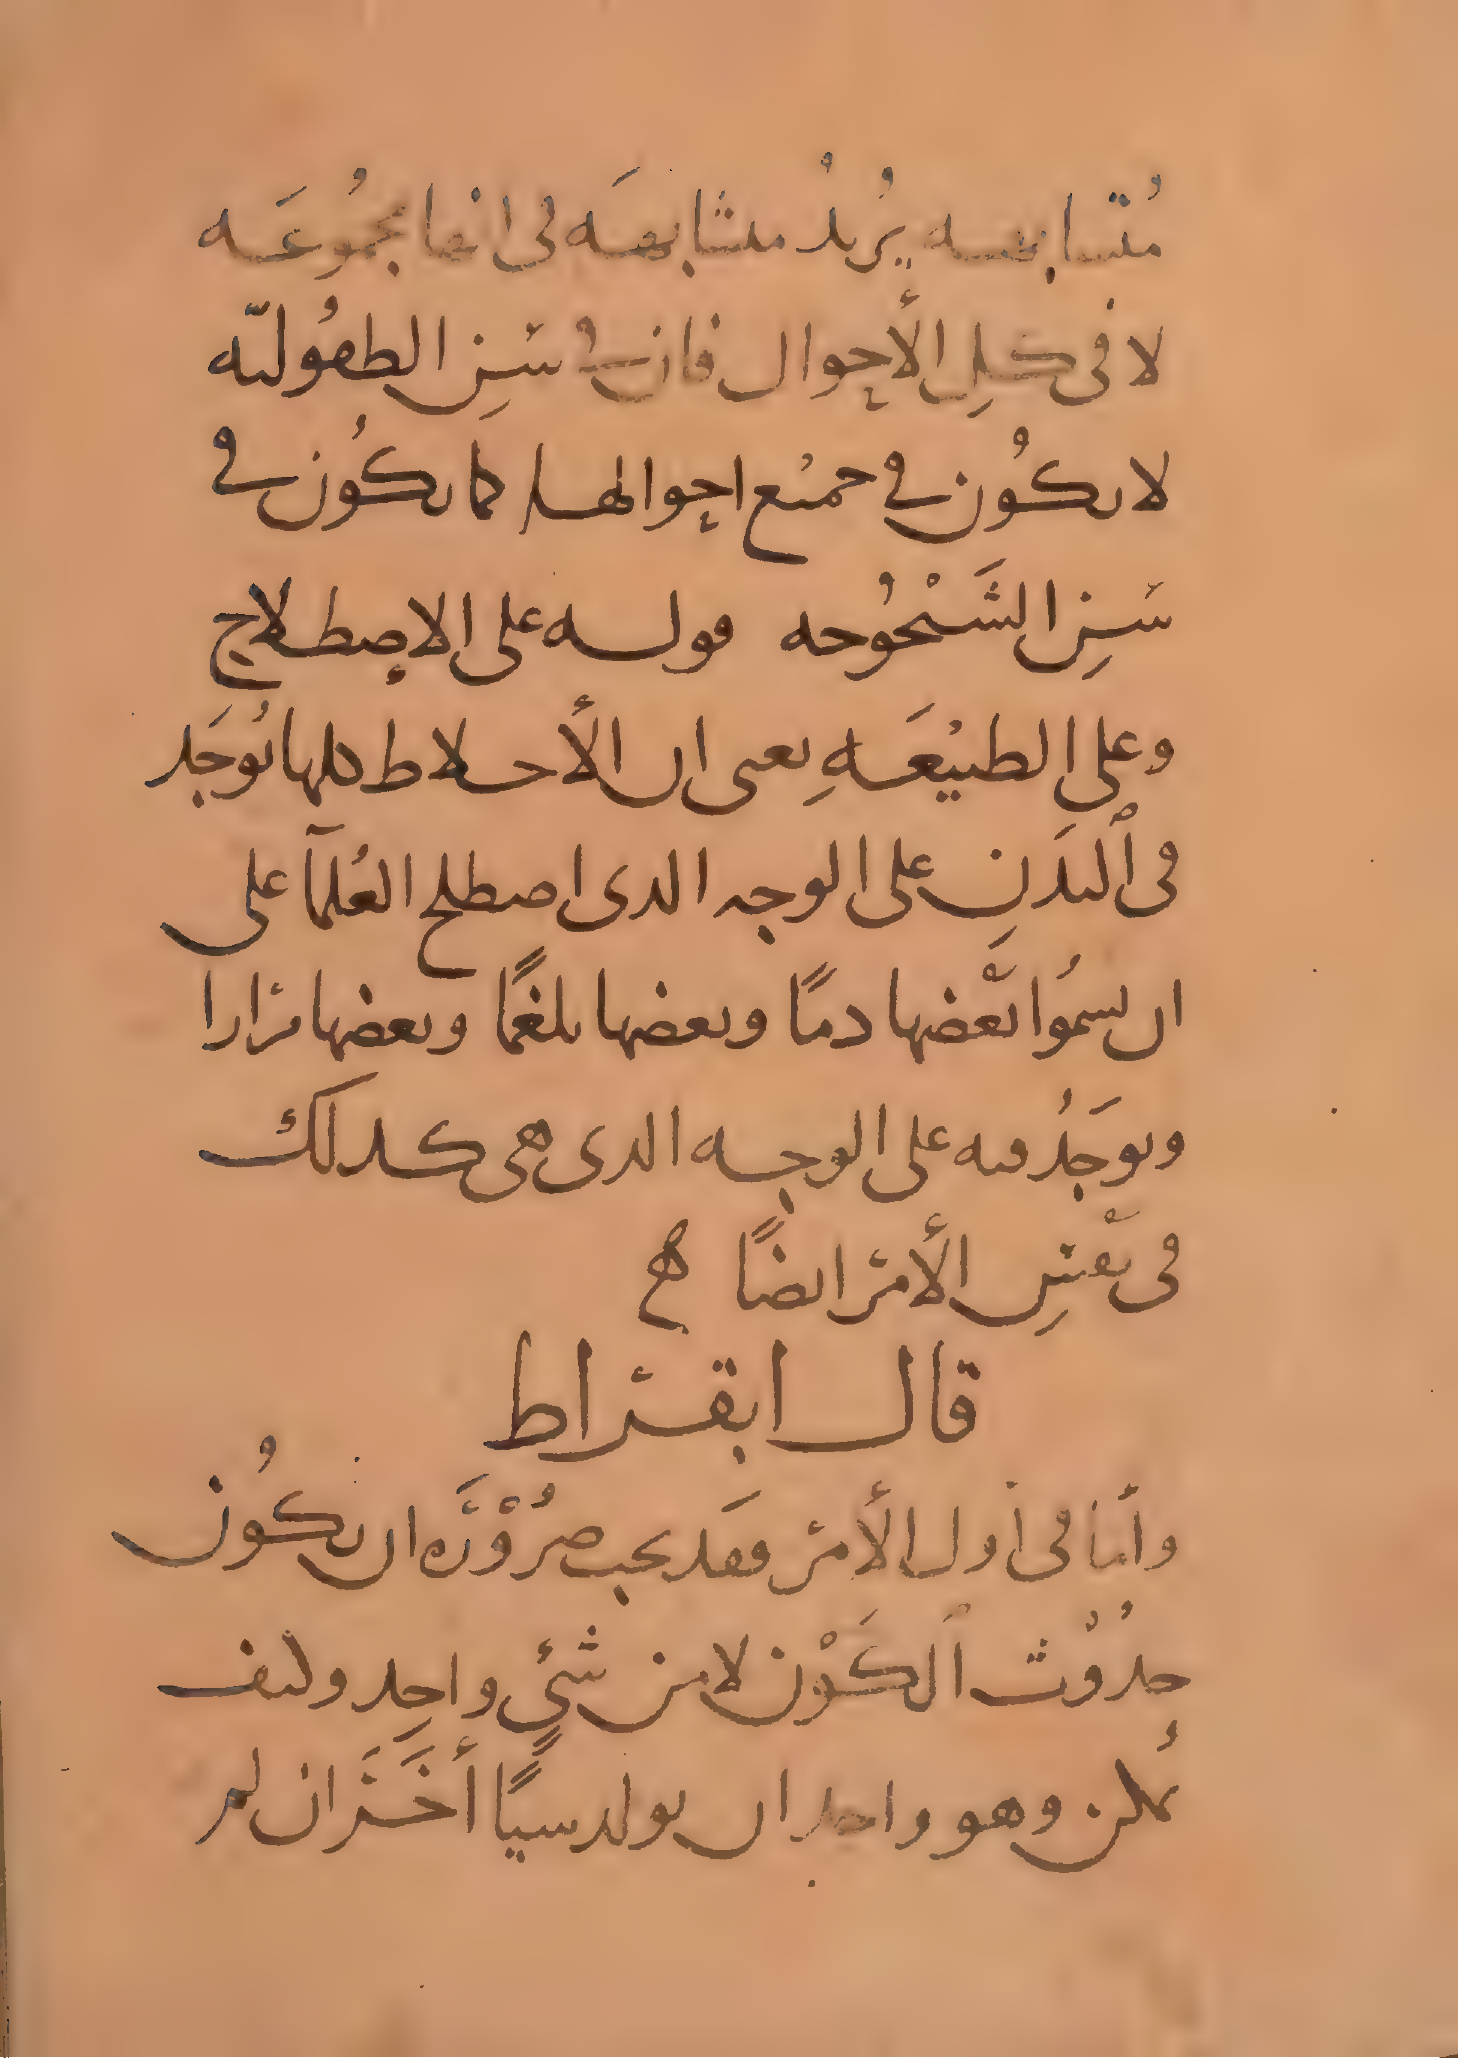 مُتشابهه يُريدْ متشابهَه فى انها مجمُوعَه
لا فى كلِ الأحوال فان فى سَنِ الطفُوليّه
لا يكُون في جميْع احوالها كما يكُون في
سَنِ الشَيْخُوخه قوله على الاصطلاح
وعلى الطبيْعَهِ يعنى ان الأخلاط كلها تُوجَد
فى ٱلبدَنِ على الوجه الذى اصطلح العُلمآ على
ان يسمُوا بَعْضها دمًا وبعضها بلغمًا وبعضها مرارا
ويوجَدُ فيه على الوجه الذى هى كذلك
فى نفْسِ الأمر ايضًا هح
قال ابقراط
وأما فى أول الأمر فقَد يجب ضرُوْرَه ان يكُون
حدُوْث ٱلكَوْن لا من شئٍ واحِدٍ وكيف
يُمكن وهو واحد ان يولد شيًا أخَرَ ان لم